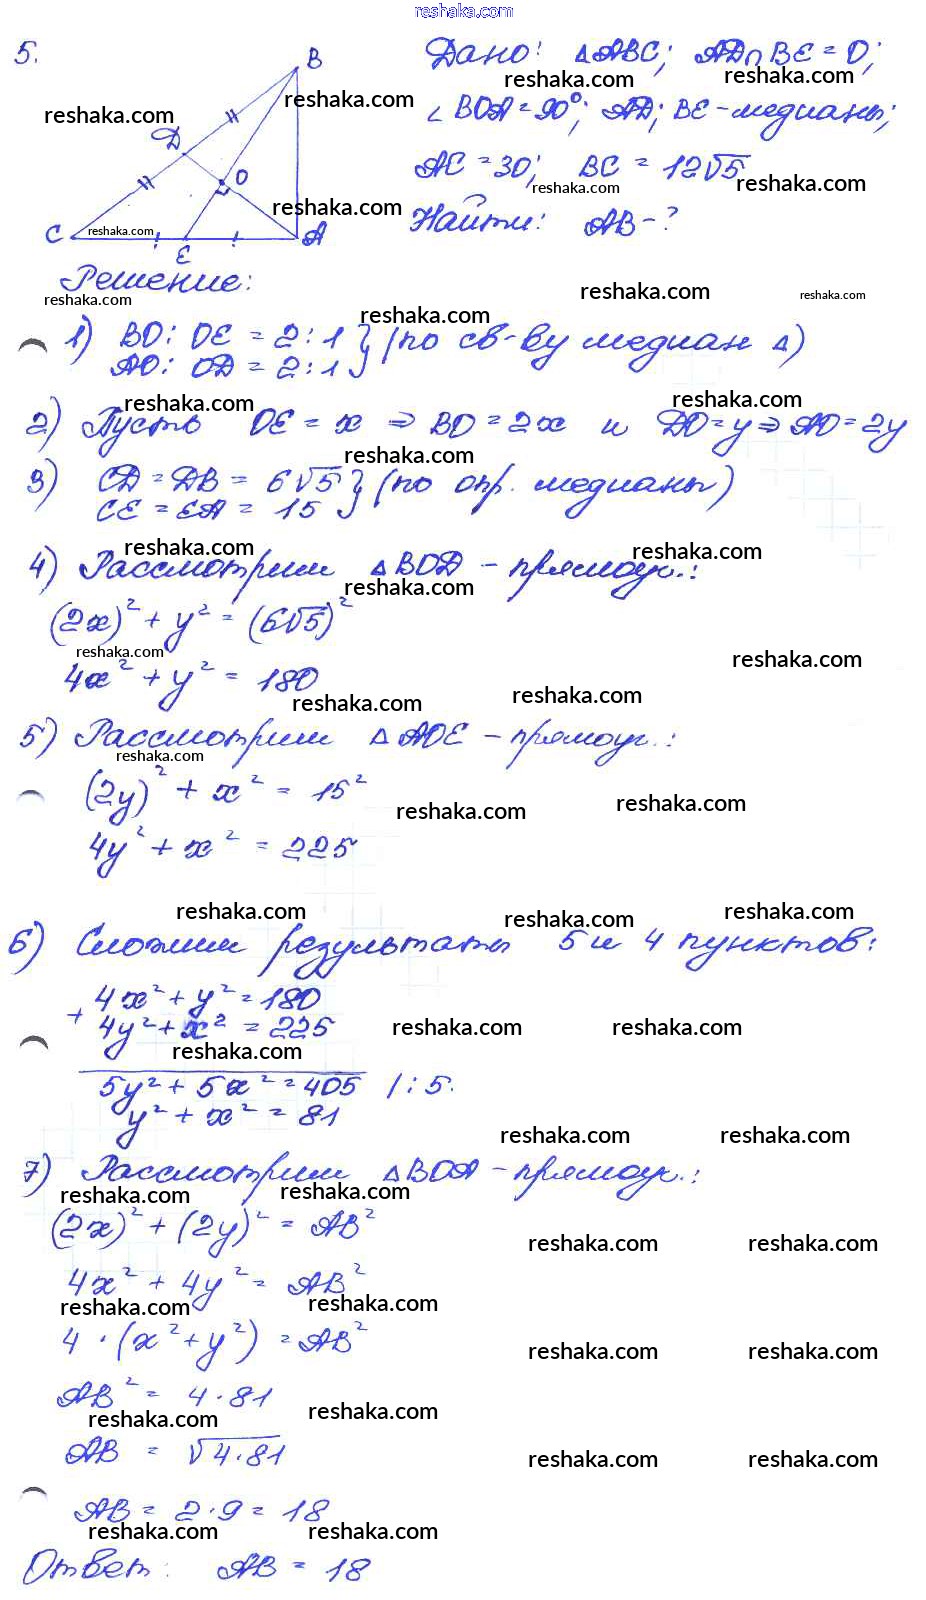 reshaka.com
5.
Дано: △ABC; AD∩BE=O;
∠BOA=90°; AD; BE-медианы;
AC=30; BC=12√5
Найти: AB-?
B
D
O
C
E
A
Решение:
1) BO:OE=2:1 } (по св-ву медиан △)
AO:OD=2:1
2) Пусть OE=x ⇒ BO=2x и DO=y ⇒ AO=2y
3) CD=DB=6√5 } (по опр. медианы)
CE=EA=15
4) Рассмотрим △BOD - прямоуг.:
(2x)²+y²=(6√5)²
4x²+y²=180
5) Рассмотрим △AOE - прямоуг.:
(2y)²+x²=15²
4y²+x²=225
6) Сложим результаты 5 и 4 пунктов:
+ 4x²+y²=180
4y²+x²=225
5y²+5x²=405 /:5.
y²+x²=81
7) Рассмотрим △BOA - прямоуг.:
(2x)²+(2y)²=AB²
4x²+4y²=AB²
4·(x²+y²)=AB²
AB²=4·81
AB=√4·81
AB=2·9=18
Ответ: AB=18